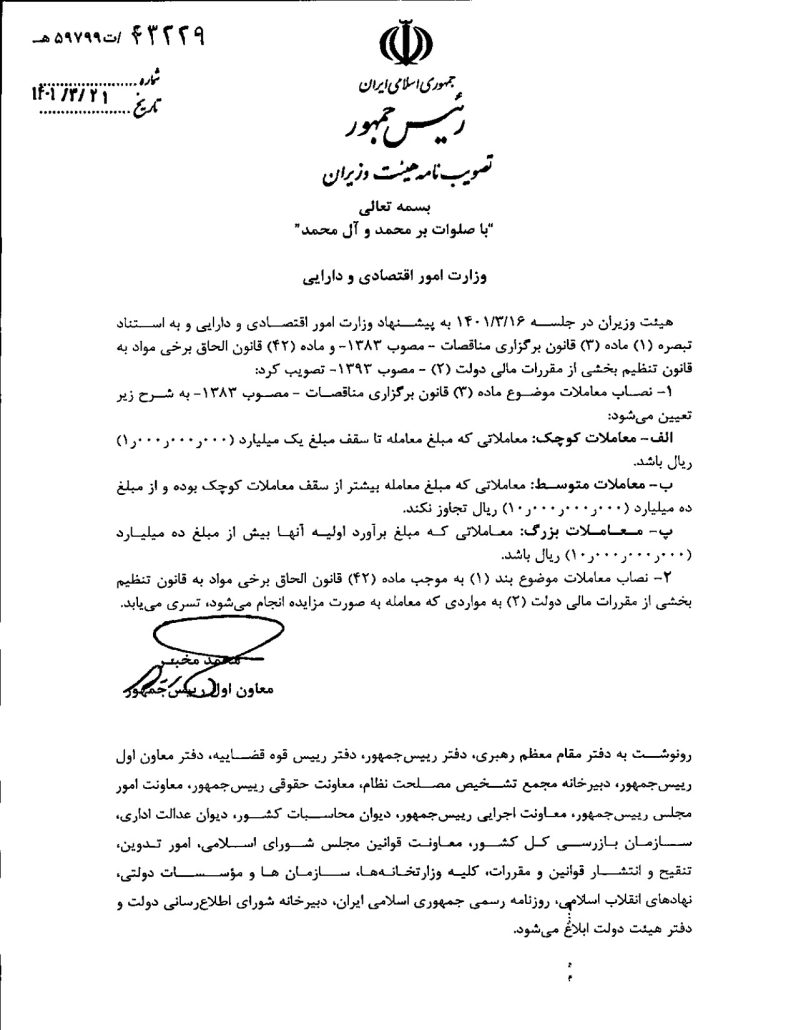 ۴۳۲۲۹ /ت۵۹۷۹۹هـ
شماره
۱۴۰۱/۳/۲۱
تاریخ
جمهوری اسلامی ایران
رئیس جمهور
تصویب نامه هیئت وزیران
بسمه تعالی
"با صلوات بر محمد و آل محمد"
وزارت امور اقتصادی و دارایی
هیئت وزیران در جلسه ۱۴۰۱/۳/۱۶ به پیشنهاد وزارت امور اقتصادی و دارایی و به استناد
تبصره (۱) ماده (۳) قانون برگزاری مناقصات - مصوب ۱۳۸۳- و ماده (۴۲) قانون الحاق برخی مواد به
قانون تنظیم بخشی از مقررات مالی دولت (۲) - مصوب ۱۳۹۳- تصویب کرد:
۱- نصاب معاملات موضوع ماده (۳) قانون برگزاری مناقصات - مصوب ۱۳۸۳- به شرح زیر
تعیین می‌شود:
الف- معاملات کوچک: معاملاتی که مبلغ معامله تا سقف مبلغ یک میلیارد (۱٫۰۰۰٫۰۰۰٫۰۰۰)
ریال باشد.
ب- معاملات متوسط: معاملاتی که مبلغ معامله بیشتر از سقف معاملات کوچک بوده و از مبلغ
ده میلیارد (۱۰٫۰۰۰٫۰۰۰٫۰۰۰) ریال تجاوز نکند.
پ- معاملات بزرگ: معاملاتی که مبلغ برآورد اولیه آنها بیش از مبلغ ده میلیارد
(۱۰٫۰۰۰٫۰۰۰٫۰۰۰) ریال باشد.
۲- نصاب معاملات موضوع بند (۱) به موجب ماده (۴۲) قانون الحاق برخی مواد به قانون تنظیم
بخشی از مقررات مالی دولت (۲) به مواردی که معامله به صورت مزایده انجام می‌شود، تسری می‌یابد.
محمد مخبر
معاون اول رییس‌جمهور
رونوشت به دفتر مقام معظم رهبری، دفتر رییس‌جمهور، دفتر رییس قوه قضاییه، دفتر معاون اول
رییس‌جمهور، دبیرخانه مجمع تشخیص مصلحت نظام، معاونت حقوقی رییس‌جمهور، معاونت امور
مجلس رییس‌جمهور، معاونت اجرایی رییس‌جمهور، دیوان محاسبات کشور، دیوان عدالت اداری،
سازمان بازرسی کل کشور، معاونت قوانین مجلس شورای اسلامی، امور تدوین،
تنقیح و انتشار قوانین و مقررات، کلیه وزارتخانه‌ها، سازمان ها و مؤسسات دولتی،
نهادهای انقلاب اسلامی، روزنامه رسمی جمهوری اسلامی ایران، دبیرخانه شورای اطلاع‌رسانی دولت و
دفتر هیئت دولت ابلاغ می‌شود.